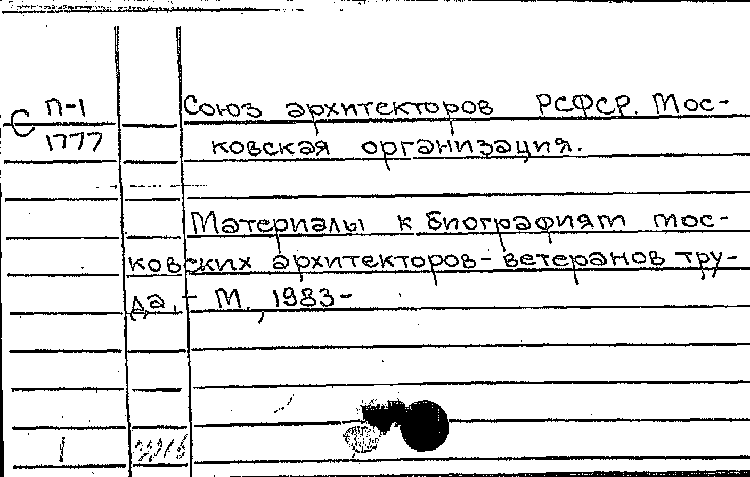 С П-1
1777
Союз архитекторов РСФСР. Мос-
ковская организация.
Материалы к биографиям мос-
ковских архитекторов-ветеранов тру-
да. - М., 1983-
1